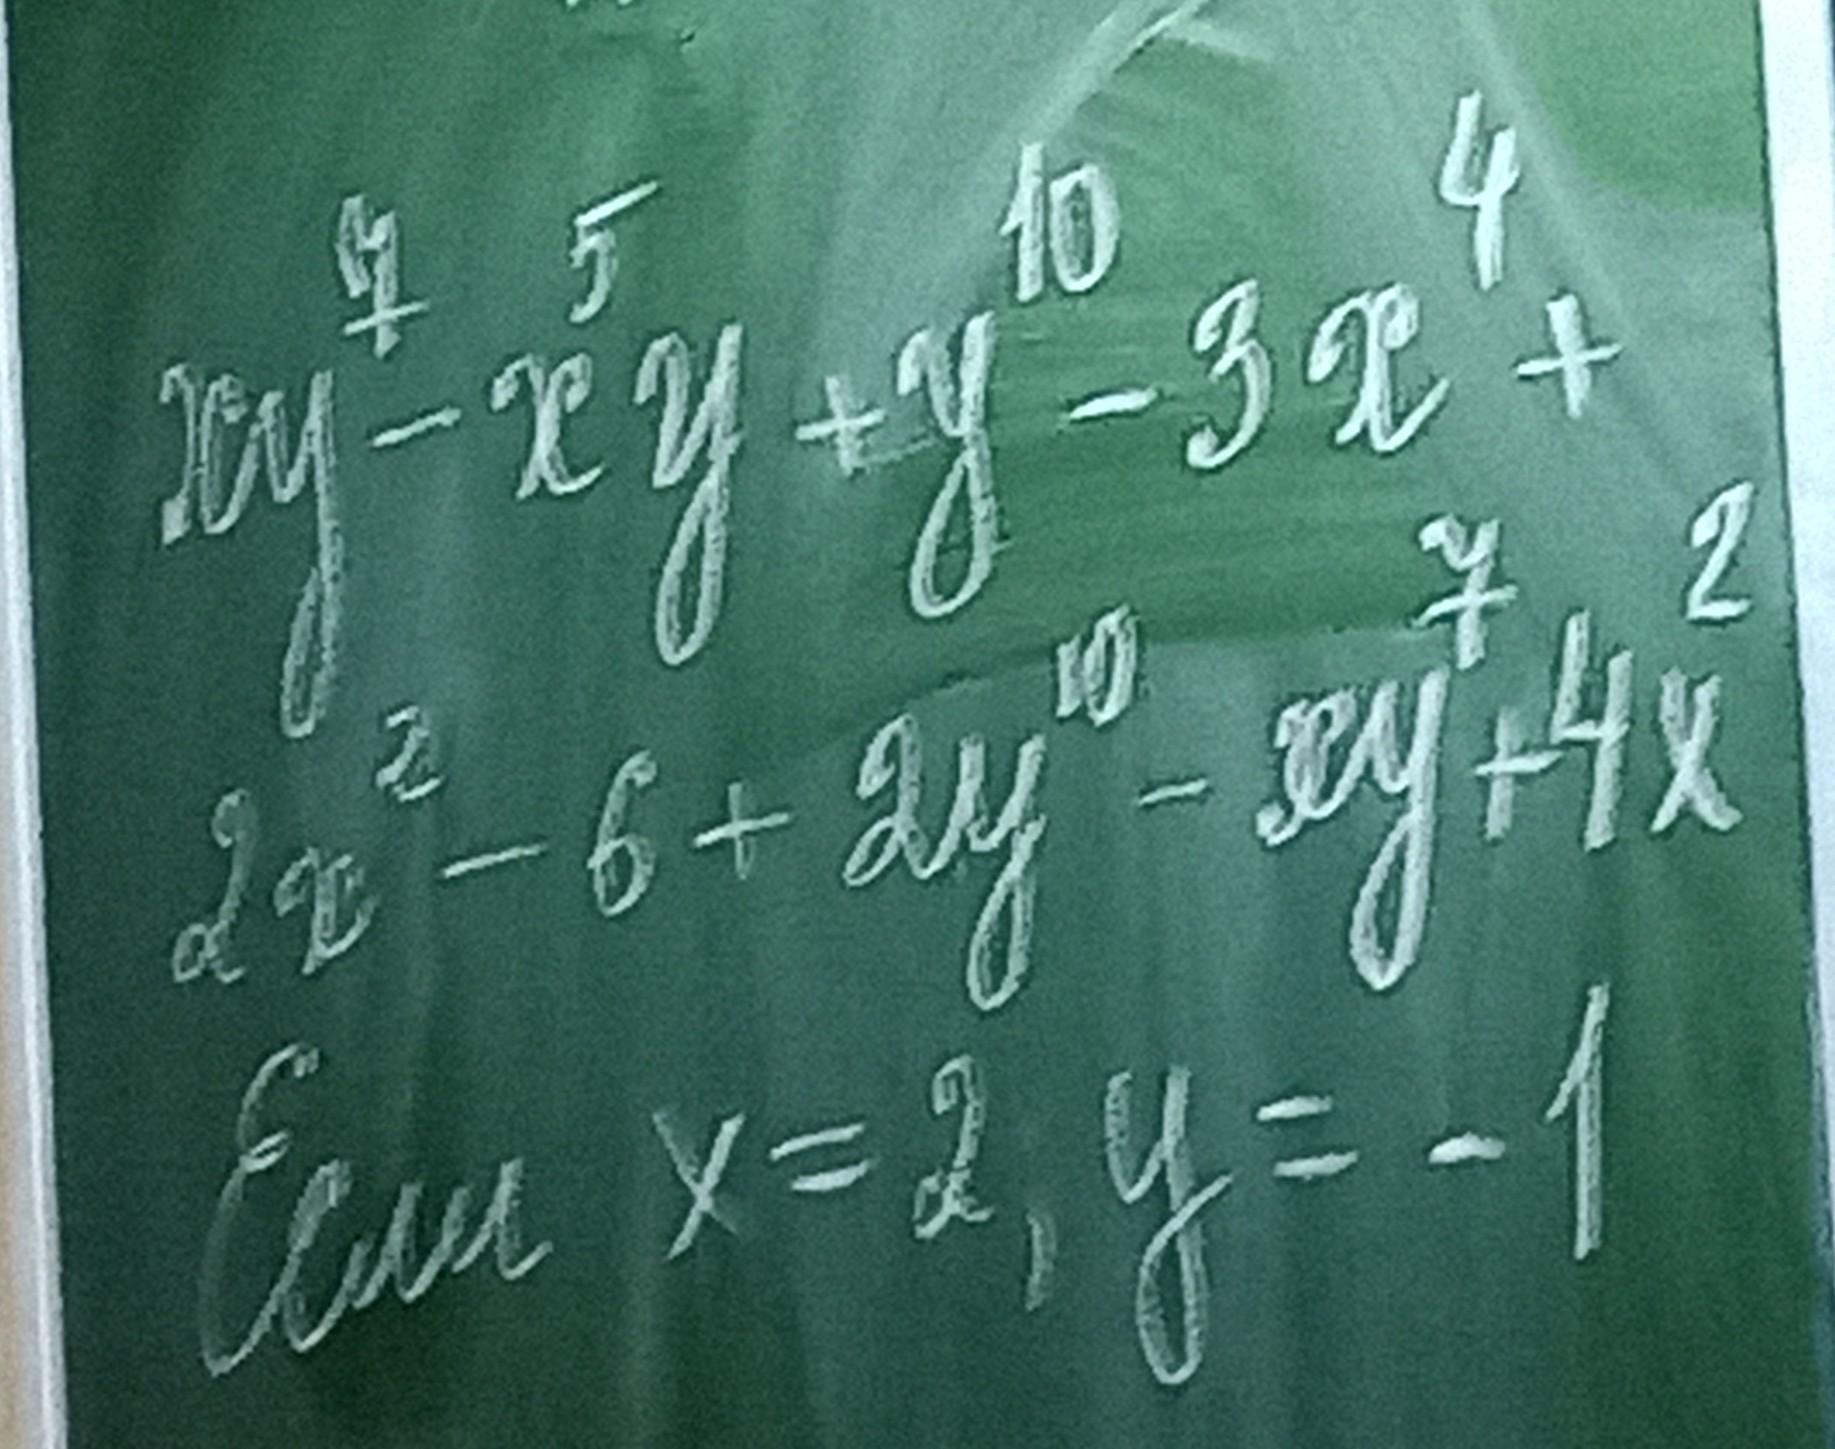 xy⁷ - x⁵y + y¹⁰ - 3x⁴ +
2x² - 6 + 2y¹⁰ - xy⁷ + 4x²
Если x = 2, y = -1